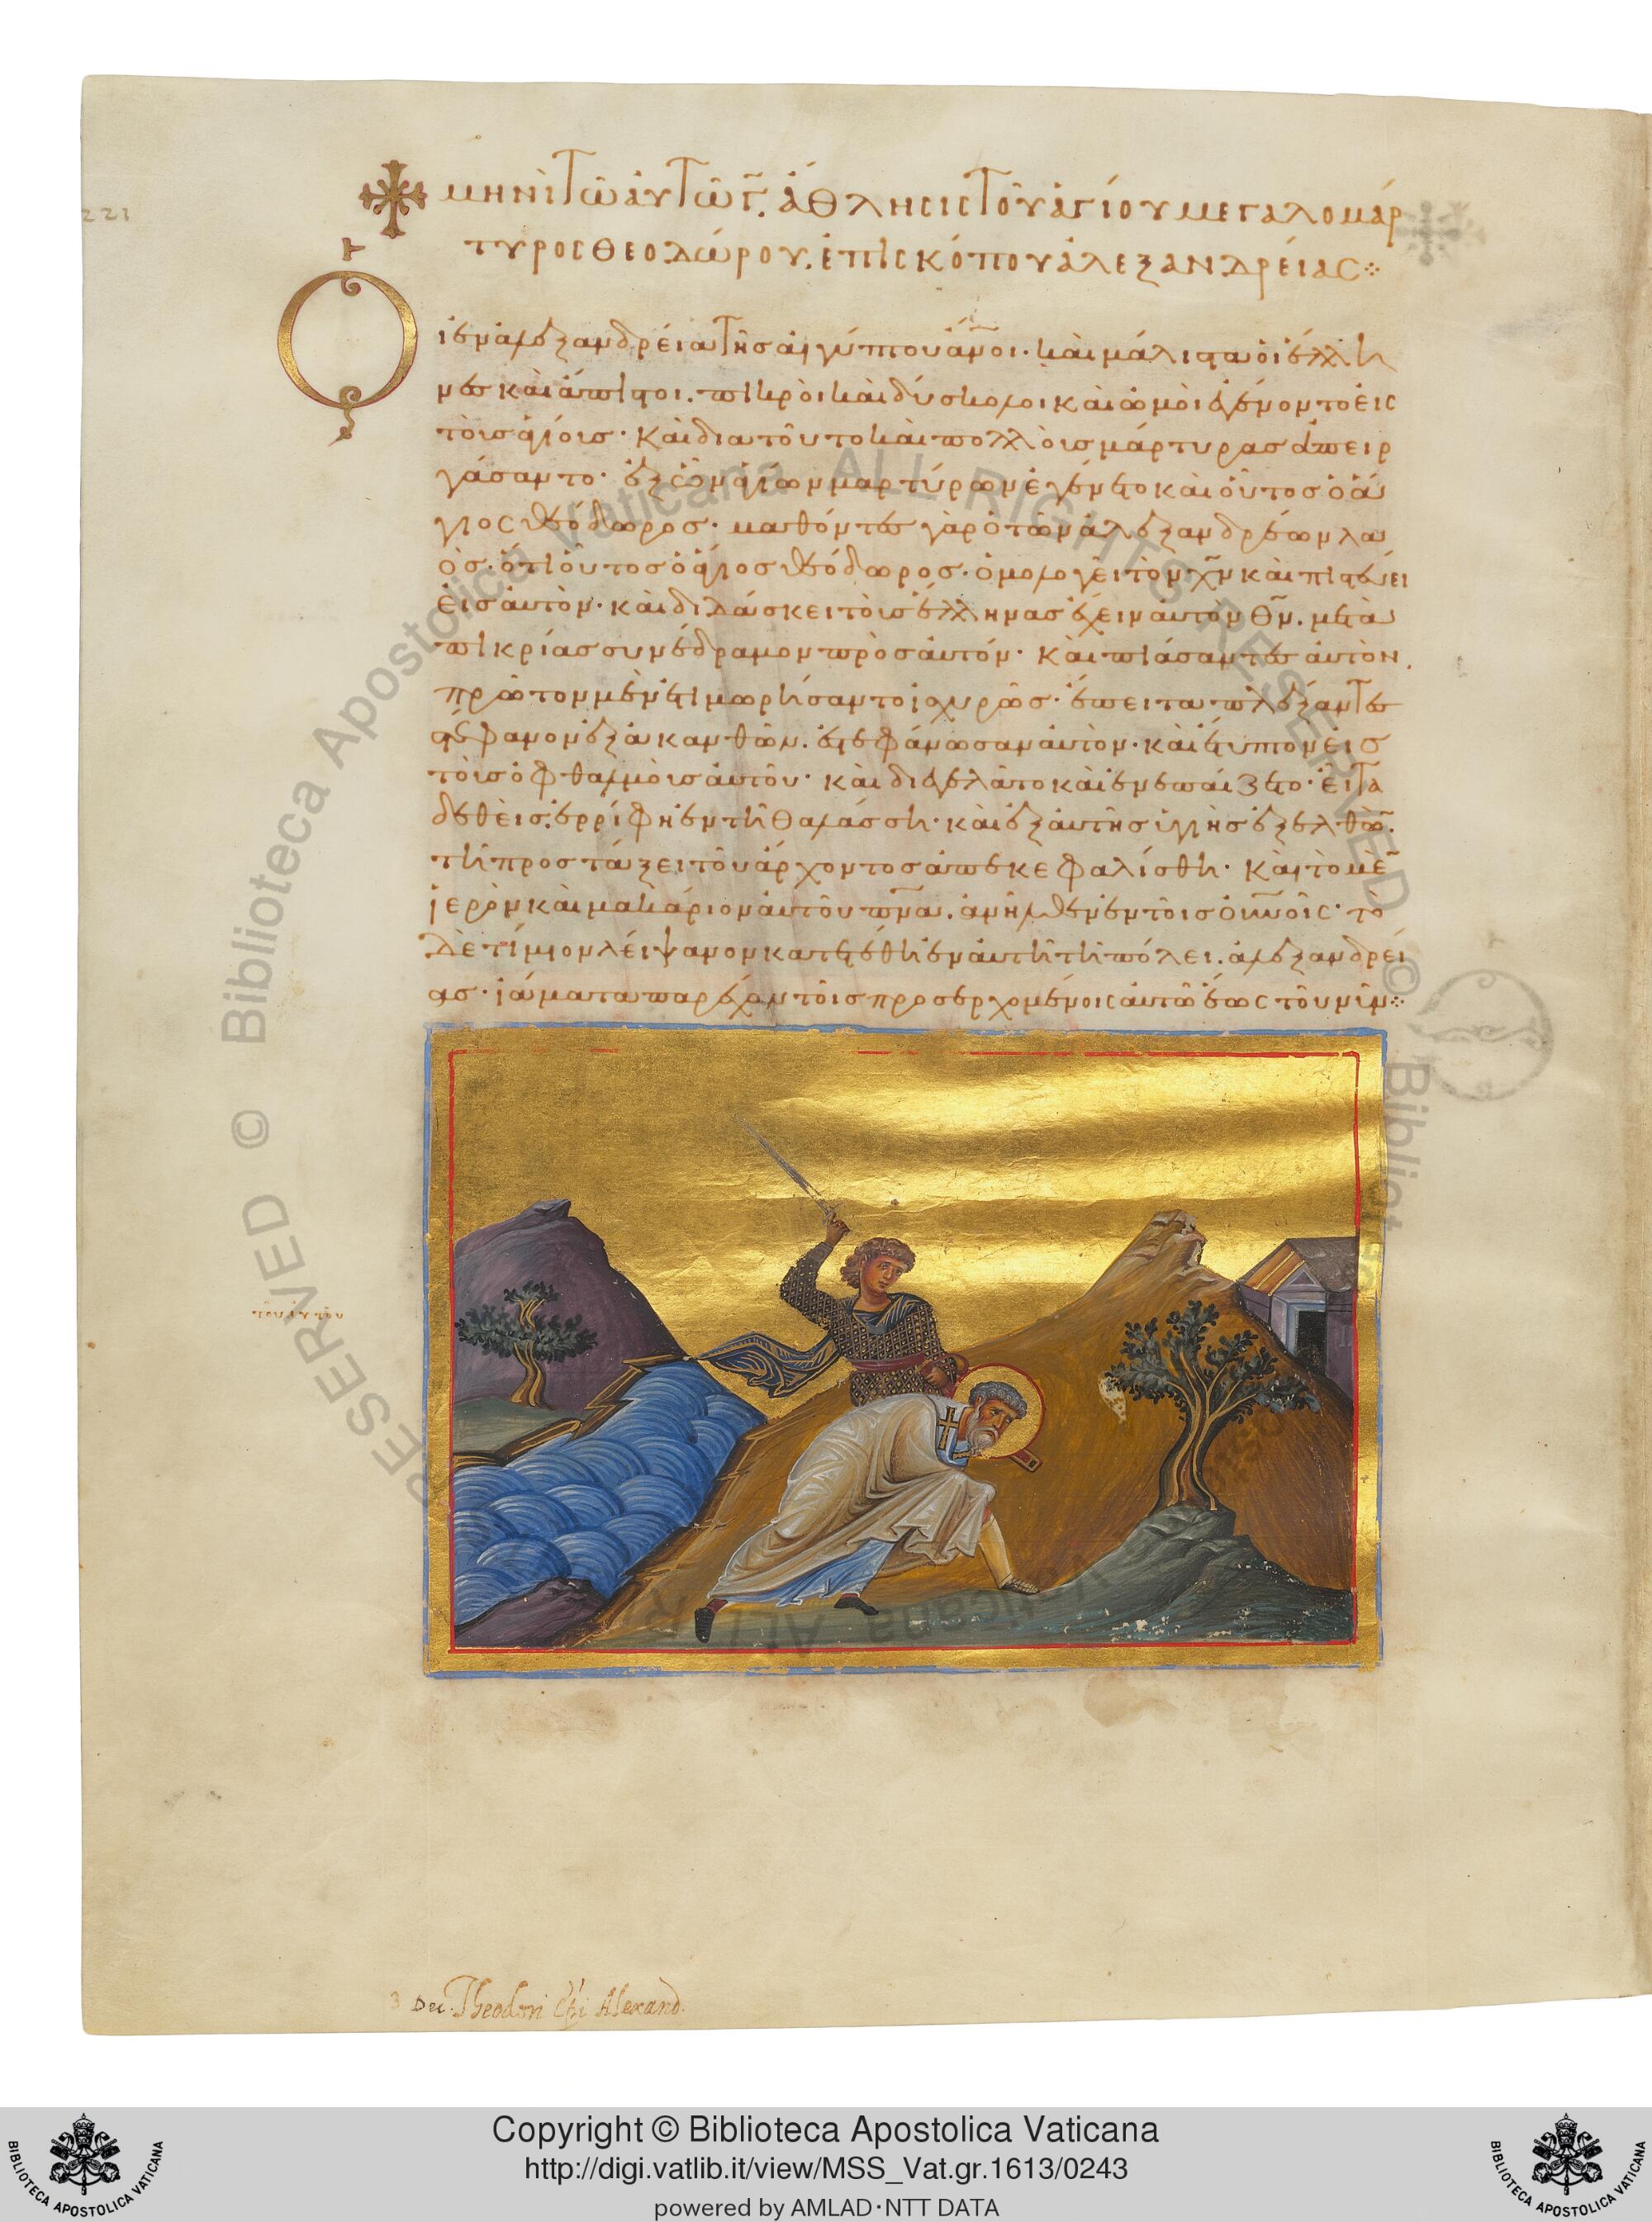 221
μηνὶ τῶ ἀυτῶ Γ̅. ἄθλησις τοῦ ἁγίου μεγαλομάρ
τυρος θεοδώρου. ἐπισκόπου ἀλεξανδρείας
Οἱ ἐν ἀλεξανδρεία τῆς αἰγύπτου ἄν̅οι· καὶ μάλιστα οἱ ἕλλη
νες καὶ ἄπιστοι. πικροὶ καὶ δύσκολοι καὶ ὠμοὶ ἐγένοντο εἰς
τοὺς ἁγίους· καὶ δια τοῦτο καὶ πολλοὺς μάρτυρας ἀπειρ
γάσαντο· ἐξ ὧν ἁγίων μαρτύρων ἐγένετο καὶ οὗτος ὁ ἅ
γιος θεόδωρος· μαθόντες γὰρ ὁ τῶν ἀλεξανδρέων λα
ὸς. ὅτι οὗτος ὁ ἅγιος θεόδωρος. ὁμολογεῖ τὸν χ̅ν καὶ πιστεύει
εἰς ἀυτὸν· καὶ διδάσκει τοὺς ἕλληνας ἔχειν ἀυτὸν θ̅ν. μετὰ
πικρίας συνέδραμον πρὸς ἀυτόν· καὶ πιάσαντες ἀυτὸν.
πρῶτον μὲν ἐτιμωρήσαντο ἰσχυρῶς· ἔπειτα πλέξαντες
στέφανον ἐξ ἀκανθῶν. ἐστεφάνωσαν ἀυτὸν· καὶ ἔτυπτον εἰς
τοὺς ὀφθαλμοὺς ἀυτοῦ· καὶ διεγελᾶτο καὶ ἐνεπαίζετο· εἶτα
δεθεὶς. ἐρρίφη ἐν τῆ θαλάσση· καὶ ἐξ ἀυτῆς ὑγιὴς ἐξελθὼ̅.
τῆ προστάξει τοῦ ἄρχοντος ἀπεκεφαλίσθη· καὶ τὸ μὲ̅
ἱερὸν καὶ μακάριον ἀυτοῦ πν̅α. ἀνῆλθεν ἐν τοῖς οὐν̅οῖς· τὸ
δὲ τίμιον λείψανον κατετέθη ἐν ἀυτῆ τῆ πόλει. ἀλεξανδρεί
ας· ἰάματα παρέχον τοῖς προσερχομένοις ἀυτῶ ἕως τοῦ νῦν
3 Dec. Theodori Epi Alexand.
Copyright © Biblioteca Apostolica Vaticana
http://digi.vatlib.it/view/MSS_Vat.gr.1613/0243
powered by AMLAD·NTT DATA
BIBLIOTECA APOSTOLICA VATICANA
BIBLIOTECA APOSTOLICA VATICANA
Biblioteca Apostolica Vaticana ALL RIGHTS RESERVED ©